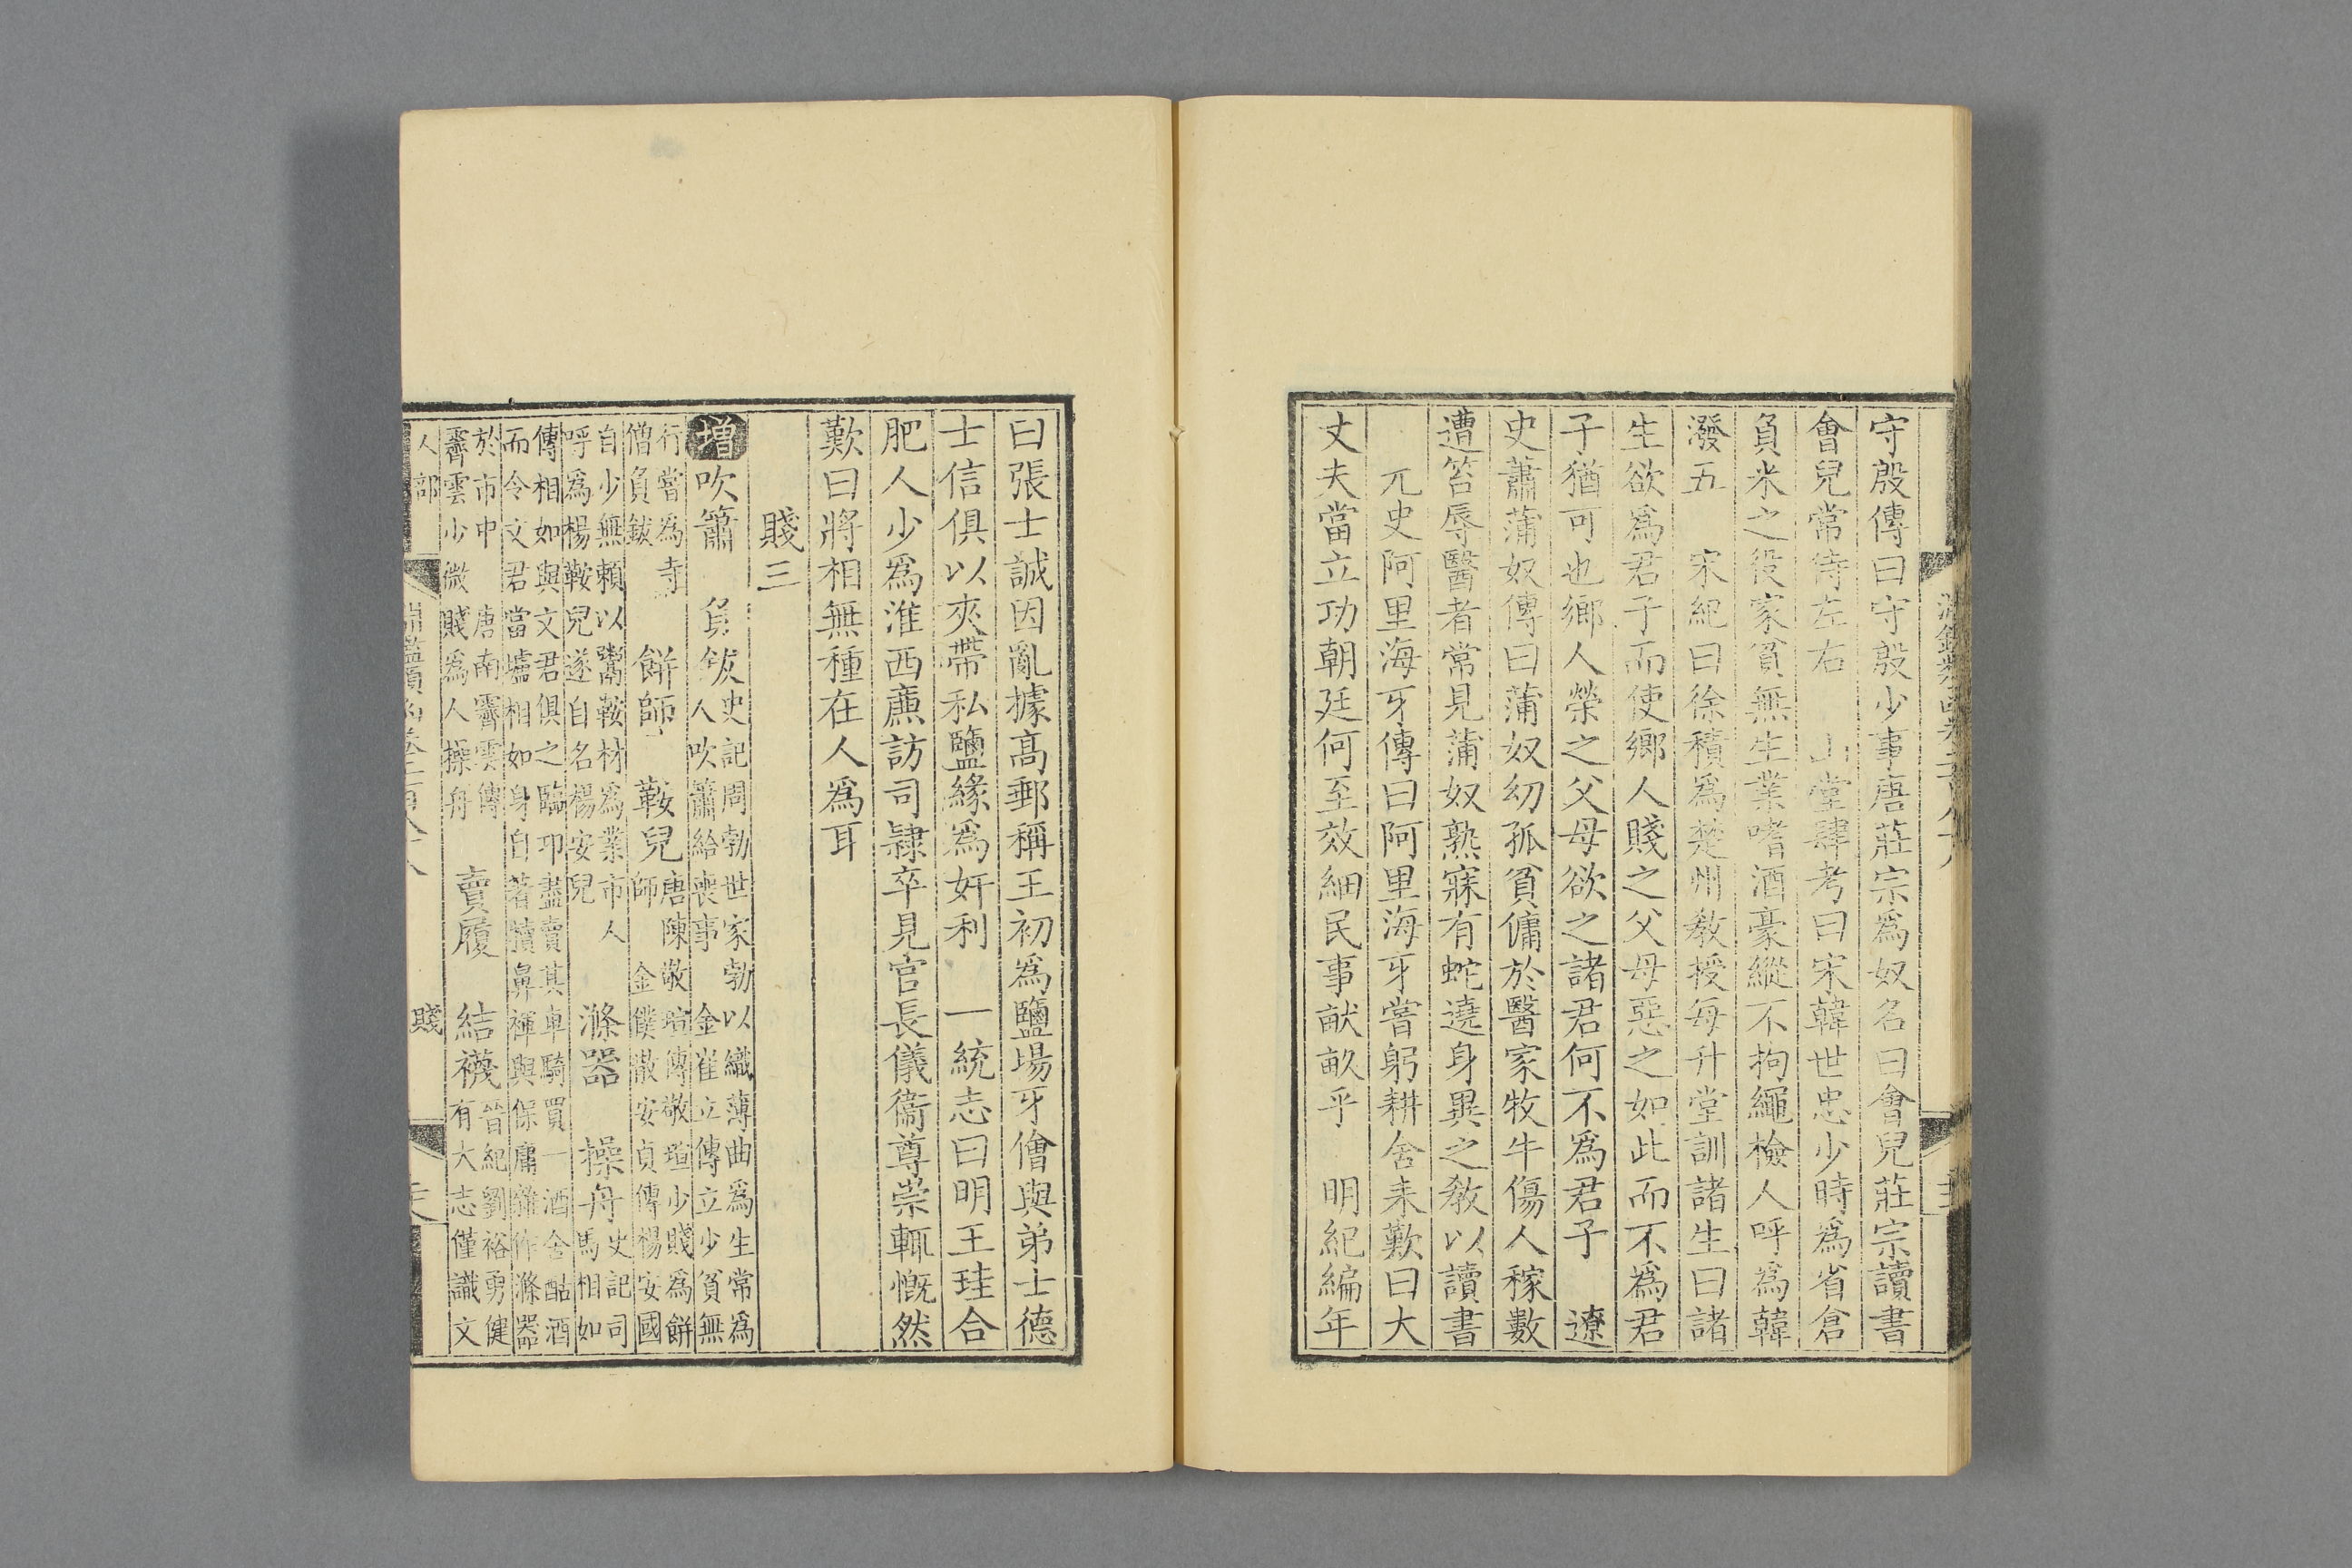 守殷傳曰守殷少事唐莊宗爲奴名曰會兒莊宗讀書
會兒常侍左右　山堂肆考曰宋韓世忠少時爲省倉
負米之役家貧無生業嗜酒豪縱不拘繩檢人呼爲韓
潑五　宋紀曰徐積爲楚州教授每升堂訓諸生曰諸
生欲爲君子而使鄉人賤之父母惡之如此而不爲君
子猶可也鄉人榮之父母欲之諸君何不爲君子　遼
史蕭蒲奴傳曰蒲奴幼孤貧傭於醫家牧牛傷人稼數
遭笞辱醫者常見蒲奴熟寐有蛇遶身異之教以讀書
元史阿里海牙傳曰阿里海牙嘗躬耕舍耒歎曰大
丈夫當立功朝廷何至效細民事畎畝乎　明紀編年
曰張士誠因亂據高郵稱王初爲鹽場牙儈與弟士德
士信俱以夾帶私鹽緣爲奸利　一統志曰明王珪合
肥人少爲淮西廉訪司隸卒見官長儀衞尊崇輒慨然
歎曰將相無種在人爲耳
賤三
增吹簫　負鈸史記周勃世家勃以織薄曲爲生常爲
人吹簫給喪事　金崔立傳立少貧無
行嘗爲寺
僧負鈸　餅師　鞍兒唐陳敬瑄傳敬瑄少賤爲餅
師　金僕散安貞傳楊安國
自少無賴以鬻鞍材爲業市人
呼爲楊鞍兒遂自名楊安兒　滌器　操舟史記司
馬相如
傳相如與文君俱之臨卭盡賣其車騎買一酒舍酤酒
而令文君當壚相如身自著犢鼻褌與保庸雜作滌器
於市中　唐南霽雲傳
霽雲少微賤爲人操舟　賣履　結襪晉紀劉裕勇健
有大志僅識文
人部　賤